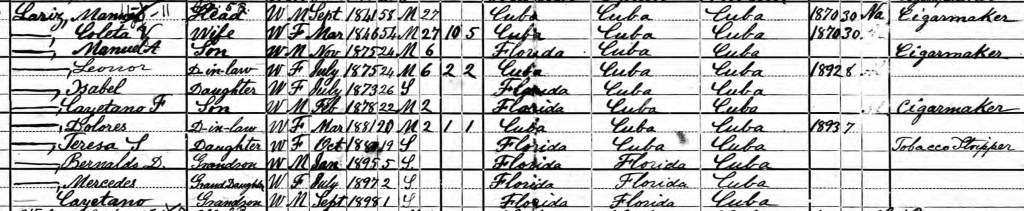 Lariz, Manuel Head W M Sept 1841 58 M 27 Cuba Cuba Cuba 1870 30 Na Cigarmaker
—, Coleta V Wife W F Mar 1846 54 M 27 10 5 Cuba Cuba Cuba 1870 30 Cigarmaker
—, Manuel A Son W M Nov 1875 24 M 6 Florida Cuba Cuba Cigarmaker
—, Leonor D-in-law W F July 1875 24 M 6 2 2 Cuba Cuba Cuba 1892 8
—, Isabel Daughter W F July 1873 26 S Florida Cuba Cuba
—, Cayetano F Son W M Feb 1878 22 M 2 Florida Cuba Cuba Cigarmaker
—, Dolores D-in-law W F Mar 1881 20 M 2 1 1 Cuba Cuba Cuba 1893 7
—, Teresa S Daughter W F Oct 19 S Florida Cuba Cuba Tobacco Stripper
— Bernaldo D. Grandson W M Jan 1895 5 S Florida Florida Cuba
—, Mercedes Grand Daughter W F July 1897 2 S Florida Florida Cuba
— Cayetano Grandson W M Sept 1898 1 S Florida Florida Cuba